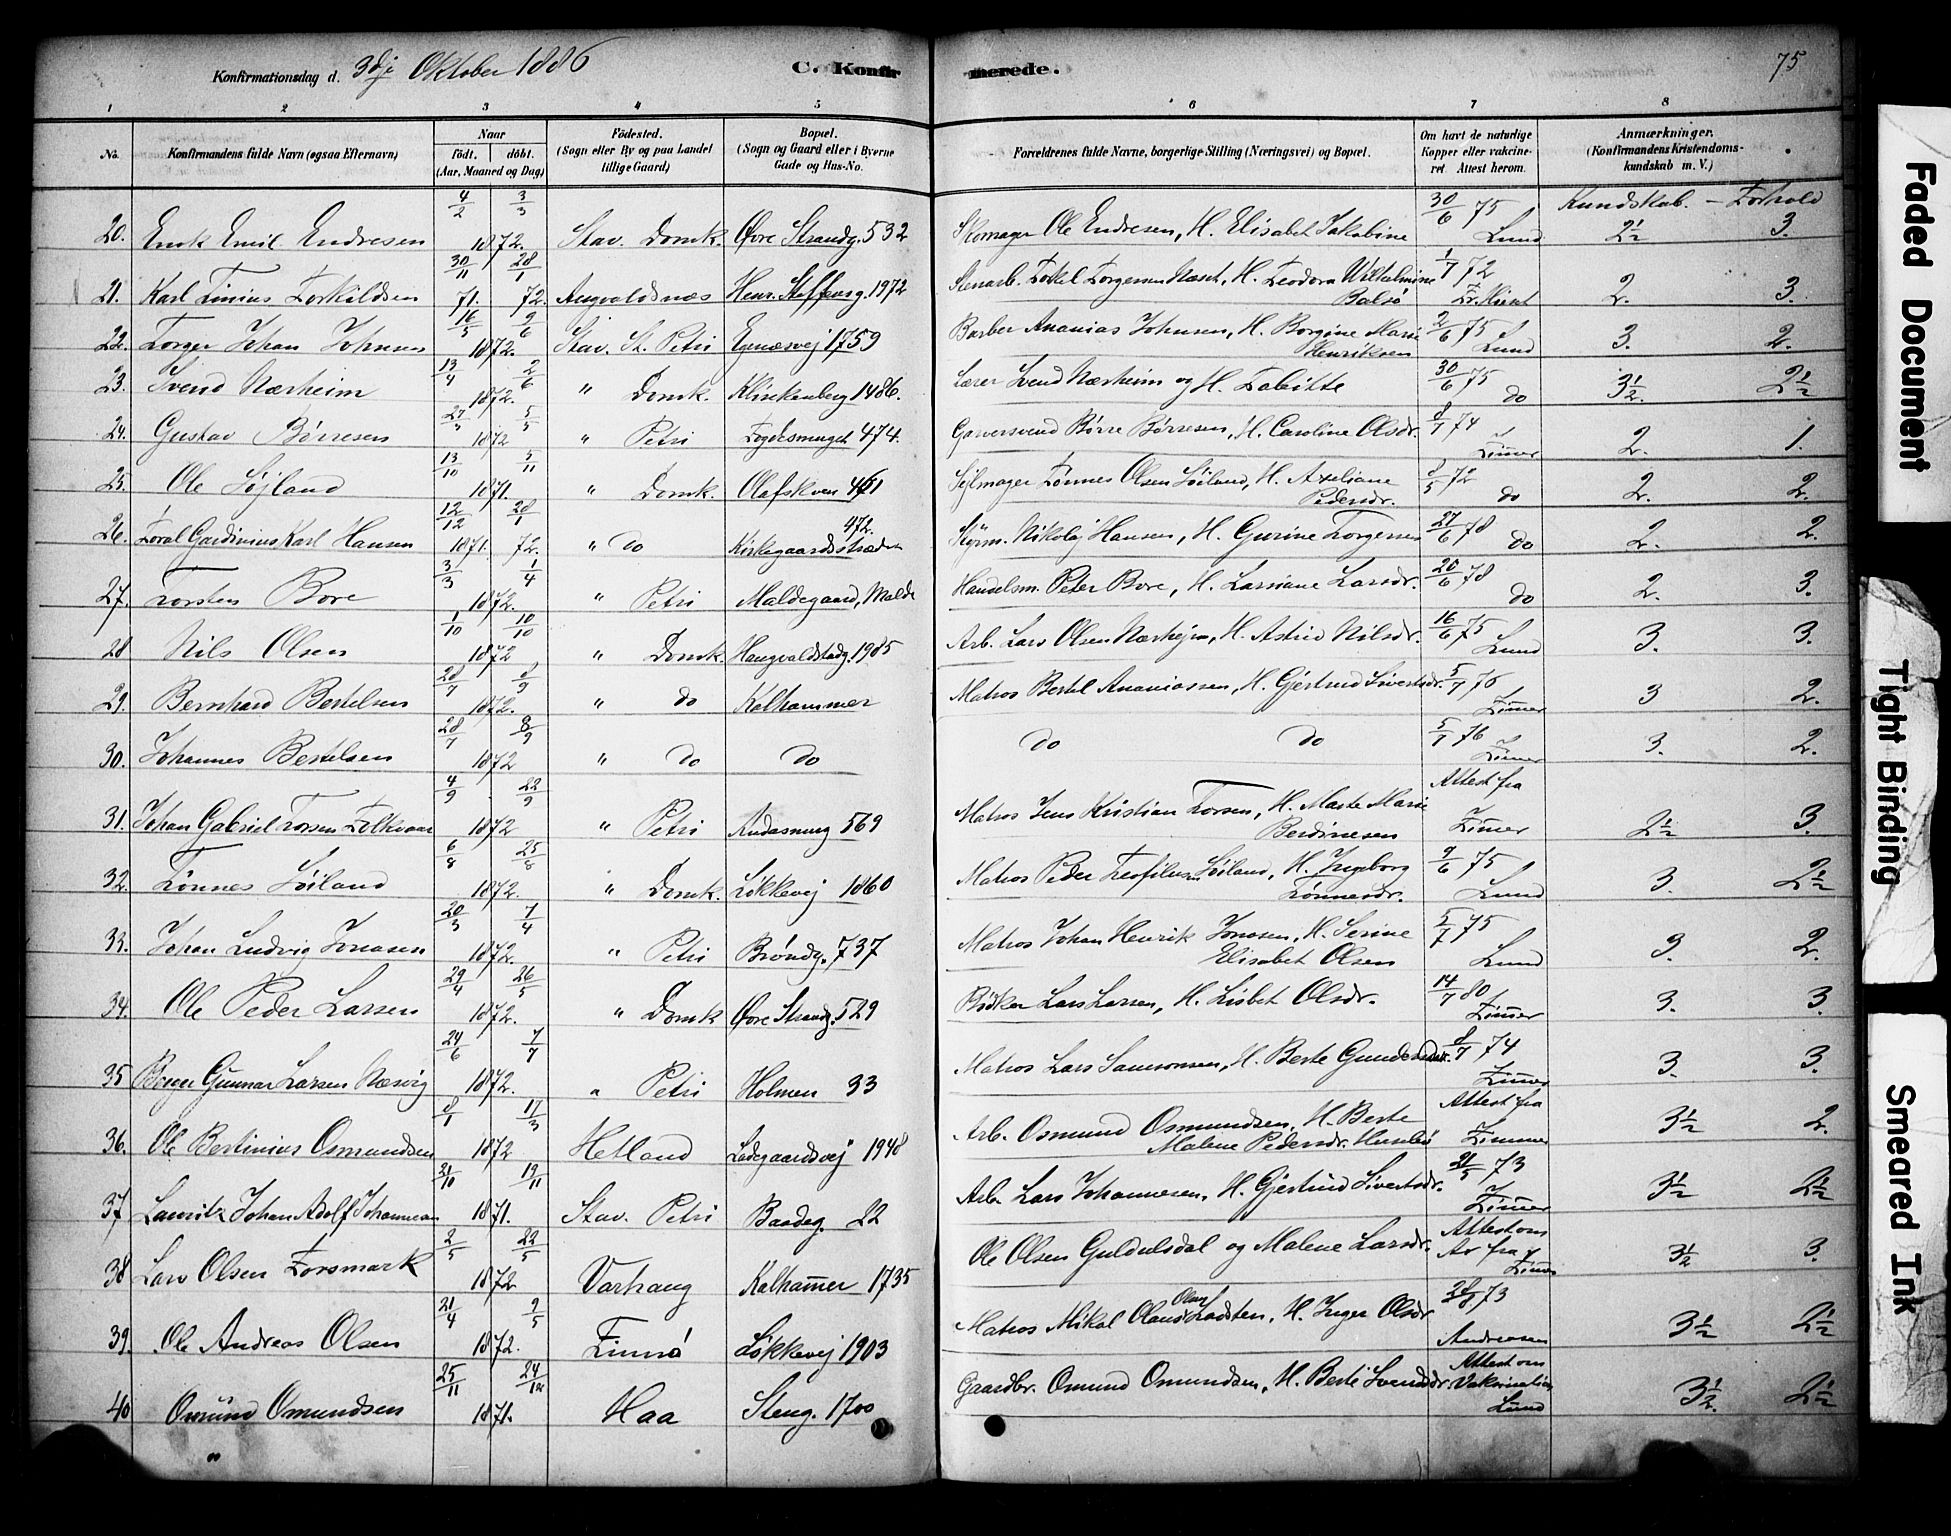 Konfirmationsdag d. 3dje Oktober 1886 C. Konfirmerede. 75
1 2 3 4 5 6 7 8
No. Konfirmandens fulde Navn (ogsaa Efternavn) Naar födt. döbt. (Aar, Maaned og Dag) Födested. (Sogn eller By og paa Landet tillige Gaard) Bopæl. (Sogn og Gaard eller i Byerne Gade og Hus-No. Forældrenes fulde Navne, borgerlige Stilling (Næringsvei) og Bopæl. Om havt de naturlige Kopper eller vakcineret Attest herom. Anmærkninger. (Konfirmandens Kristendomskundskab m. V.)
Kundskab. – Forhold
20. Enok Emil Endresen 4/2 3/3 1872. Stav. Domk. Øvre Strandg. 532 Skomager Ole Endresen, H. Elisabet Jakobine 30/6 75 Lund 2½ 3.
21. Karl Tinius Torkildsen 30/11 71. 28/1 72. Augvaldsnæs Henr. Steffensg. 1972 Stenarb. Torkel Torgersen Næset, H. Teodora Vilhelmine Balsø 1/7 72 2. 3.
22. Torger Johan Johnsen 16/5 9/6 1872. Stav. St. Petri Egnæsvej 1759 Barber Ananias Johnsen, H. Borgine Marie Henriksen 2/6 75 Lund 3. 2.
23. Svend Nærheim 13/4 2/6 1872. " Domk. Klinkenberg 1486. Lærer Svend Nærheim og H. Tabitte 30/6 75 do 3½. 2½
24. Gustav Børresen 27/3 5/5 1872 " Petri Fogdesmuget 474. Garversvend Børre Børresen, H. Caroline Olsdr. 8/7 74 Zimer 2. 1.
25. Ole Søjland 13/10 5/11 1871. " Domk. Olafskleven 461 Sejlmager Tønnes Olsen Söiland, H. Axeliane Pedersdr. 8/5 72 do 2. 2.
26. Toral Gardinius Karl Hansen 12/12 1871. 28/1 72. " do Kirkegaardsstræden 472. Styrm. Nikolaj Hansen, H. Gurine Torgersen 27/6 78 do 2. 2.
27. Torsten Bore 3/3 1/4 1872. " Petri Maldegaard, Malde Handelsm. Peter Bore, H. Larsiane Larsdr. 20/6 78 do 2. 3.
28 Nils Olsen 1/10 10/10 1872 " Domk. Haugvaldstadg. 1985 Arb. Lars Olsen Nærhejm, H. Astrid Nilsdr. 16/6 75 Lund 3. 3.
29. Bernhard Bertelsen 28/7 8/9 1872. " do Kalhammer Matros Bertel Ananiassen, H. Gjertrud Sivertsdr. 5/7 76 Zimer 3 2.
30. Johannes Bertelsen 28/7 8/9 1872 " do do do do 5/7 76 Zimer 3. 2.
31. Johan Gabriel Torsen Folkvaar 4/9 22/9 1872 " Petri Andasmug 569 Matros Jens Kristian Torsen, H. Marte Marie Berdinesen Attest fra Zimer 2½ 3.
32. Tönnes Söiland 6/8 25/8 1872. " Domk. Løkkevej 1860 Matros Peder Teofilus Söiland, H. Ingeborg Tönnesdr. 9/6 75 Lund 3. 2½
33. Johan Ludvig Jonasen 20/3 7/4 1872. " Petri Brøndg. 737 Matros Johan Henrik Jonasen, H. Serine Elisabet Olsen 5/7 75 Lund 3. 2.
34. Ole Peder Larsen 29/4 26/5 1872. " Domk Øvre Strandg. 529 Bødker Lars Larsen, H. Lisbet Olsdr. 14/7 80 Zimer 3. 3.
35 Berger Gunnar Larsen Næsvig 24/6 7/7 1872. " Petri Holmen 33 Matros Lars Samsonsen, H. Berte Gundersdr. 8/7 74 Zimer 3. 3.
36. Ole Bertinius Osmundsen 8/1 17/3 1872 Hetland Ladegaardsvej 1948 Arb. Osmund Osmundsen, H. Berte Malene Pedersdr. Husebø Attest fra Zimmer 3½ 2.
37 Lauritz Johan Adolf Johannesen 21/10 19/11 1871. Stav. Petri Baadeg. 22 Arb. Lars Johannesen, H. Gjertrud Sivertsdr. 21/5 73 Zimer 3½ 2½
38 Lars Olsen Forsmark 2/5 22/5 1872 Varhaug Kalhammer 1735 Ole Olsen Guldulsdal og Malene Larsdr. Attest om Ar fra Zimer 3½ 3.
39. Ole Andreas Olsen 21/4 9/5 1872. Finnö Løkkevej 1903 Matros Mikal Olaus Olsen H. Inger Olsdr 73 Andreasen 3½ 2½
40 Osmund Osmundsen 25/11 24/12 1871. Haa Steng. 1700 Gaardbr. Osmund Osmundsen, H. Berte Svendsdr Attest om Vakcination Lund 3½. 2½
Faded Document
Tight Binding
Smeared Ink